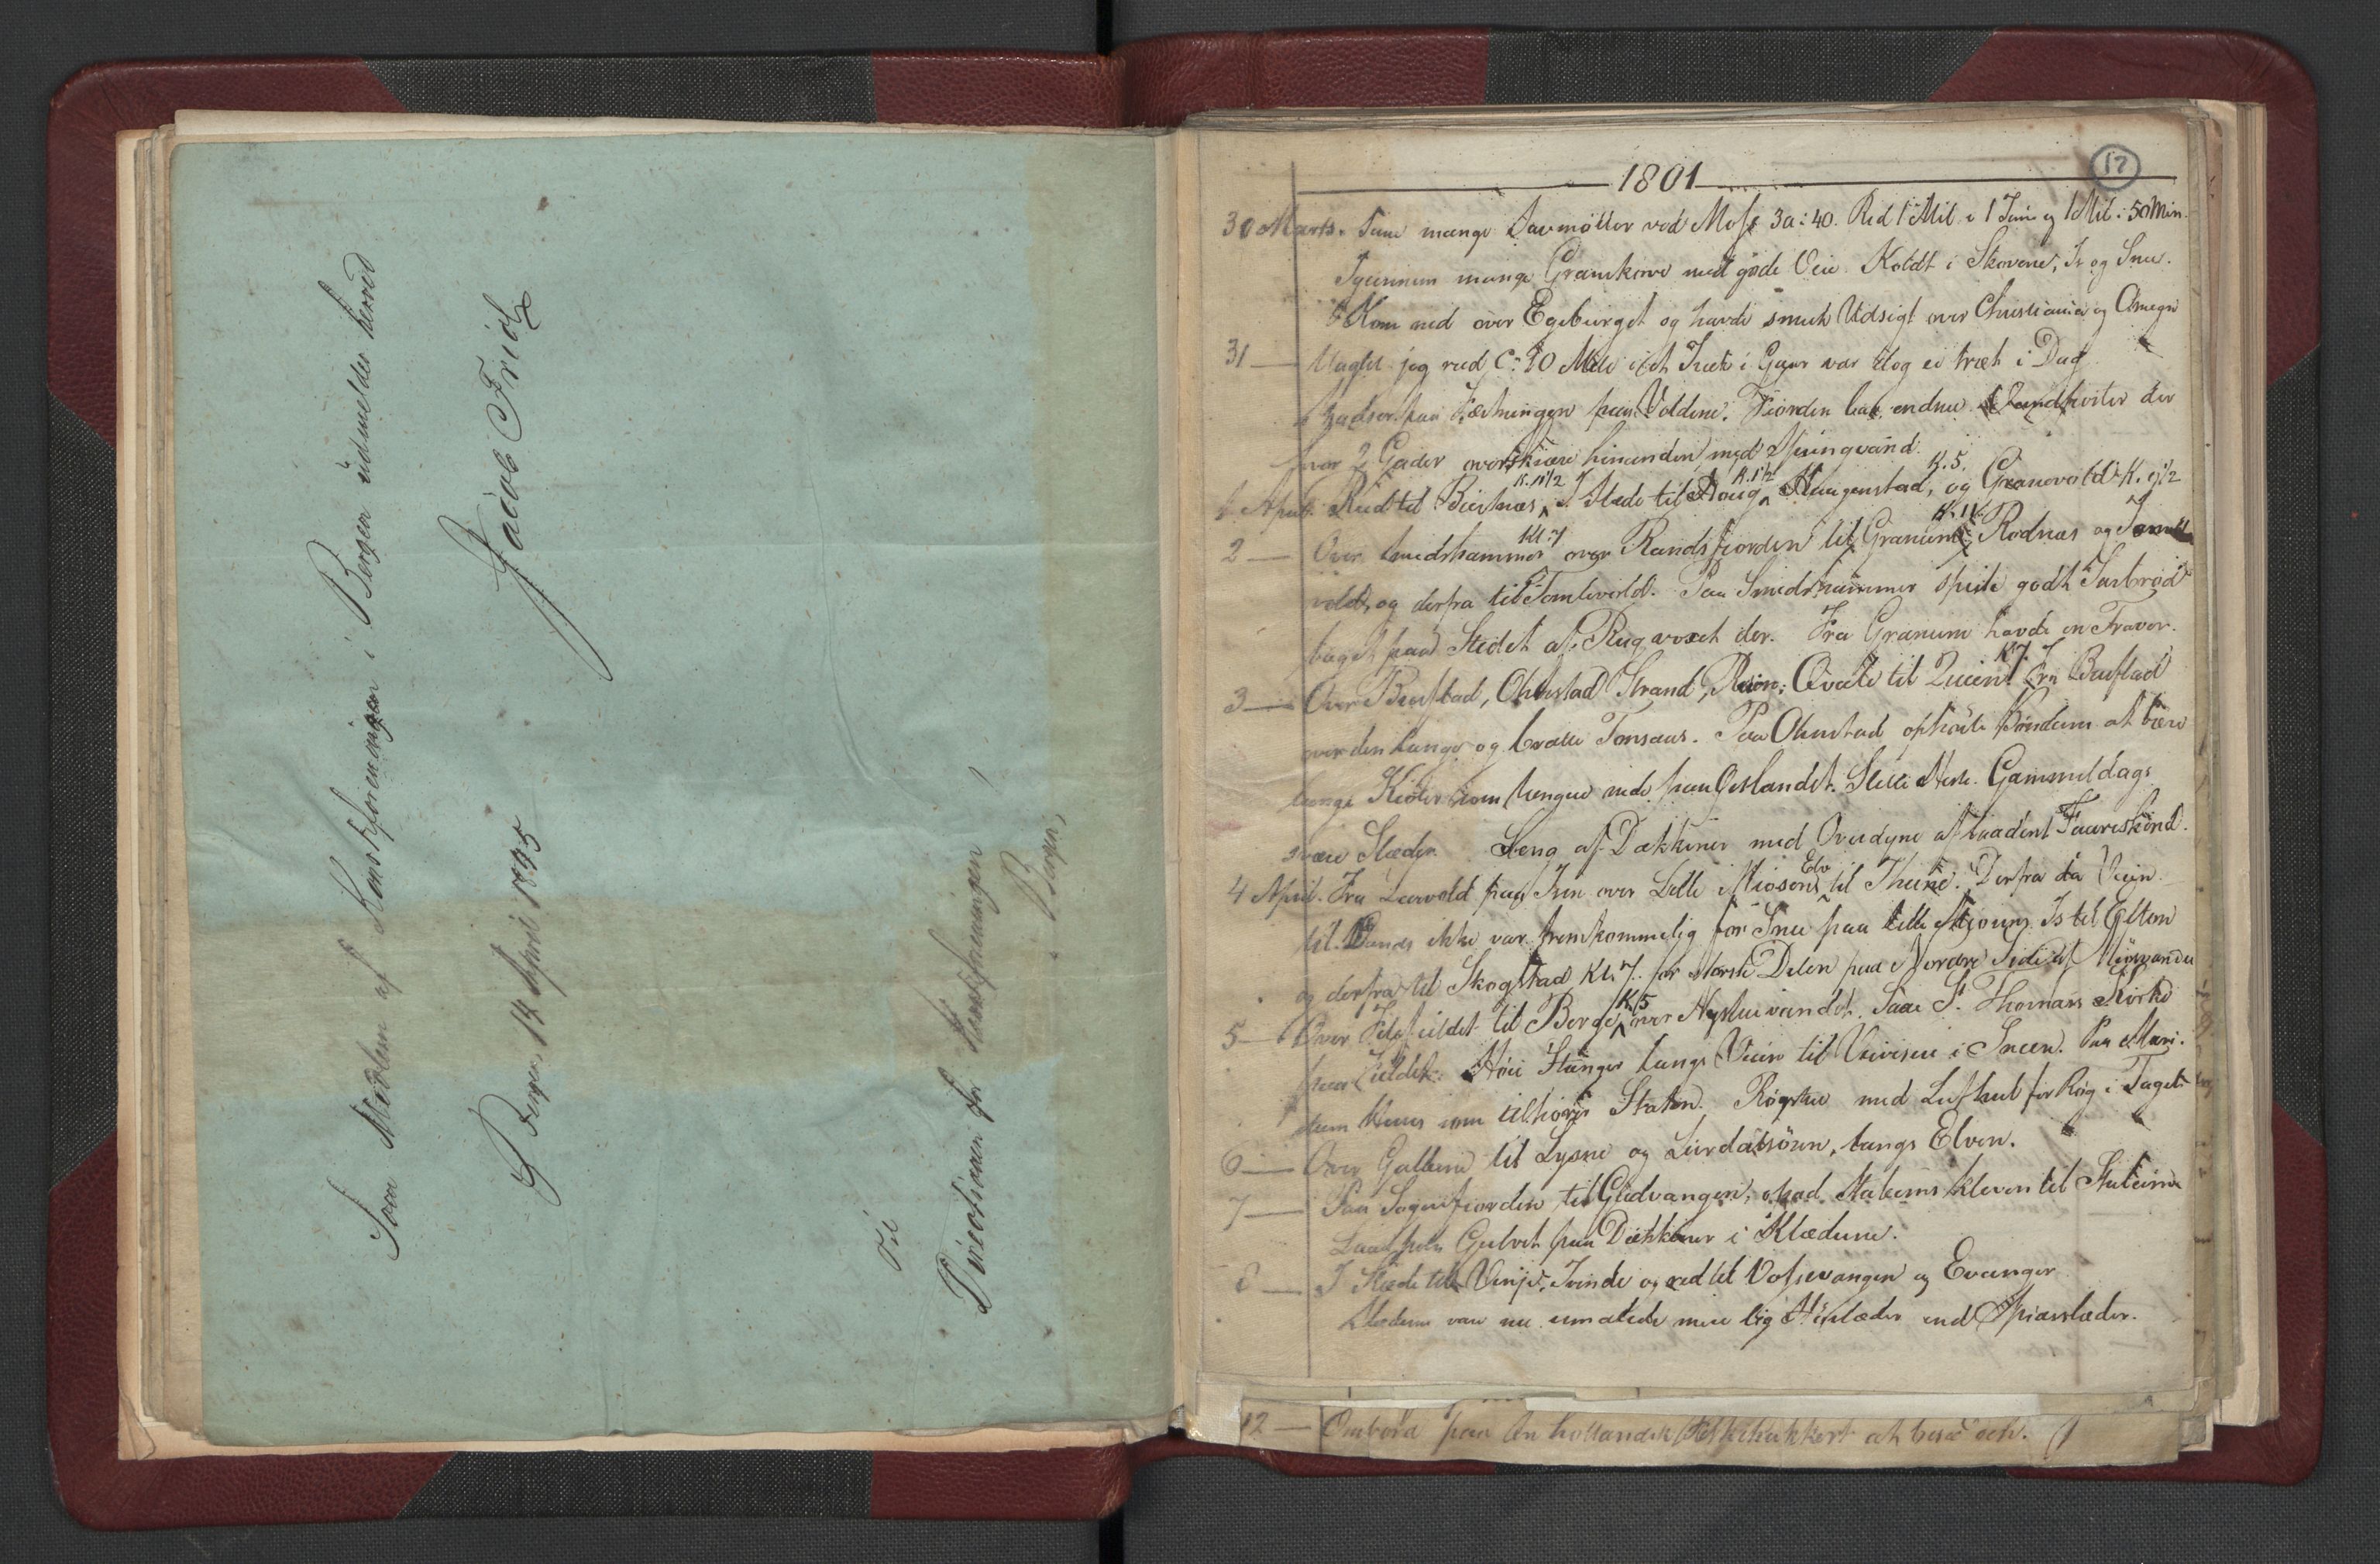 Som Medlem af Konstforeningen i Bergen udmelder herved
Jacob Frid
Bergen, 14 April 1845
Til
Directionen for Konstforeningen,
i Bergen,
17
1801
30 Marts. Saae mange Savmöller ved Moss 3 a: 40. Red 1 Mil i 1 Time og 1 Mil i 50 Min.
Igiennem mange Granskove med gode Veie. Koldt i Skovene, Is og Snee.
Kom ned over Egebierget og havde smuk Udsigt over Christiania og Omegn
31 — Uagtet jeg red C: 10 Mile i et Træk i Gaar var dog ei træt i Dag
paa Fæstningen paa Voldene. Fiorden laae endnu der
hvor 2 Gader overskiære hinanden med Springvand.
1 April. Red til Biertnæs K. 11 1/2, I Slæde til Houg K. 1 1/2, Haugenstad, K. 5. og Granevold K. 9 1/2
2 — Over Smedshammer Kl: 7 over Randsfiorden til Granum K. 11 Rodnæs og
vold, og derfra til Tomlevold. Paa Smedshammer spiste godt Surbröd
baget paa Stedet af Rug voxet der. Fra Granum havde en Traver.
3 — Over Bruflad, Olmstad Strand, Reien, Qvale til Qvien K 7. Fra Bruflad
over den lange og bratte Tonsaas. Paa Olmstad ophörte Bönderne at bære
lange Kioler som længere nede paa Oeslandet. Slette Heste. Gammeldags
svære Slæder. Seng af Dækkener med Overdyne af laadent Faareskind.
4 April. Fra Leervold paa Isen over Lille Miösens Elv til Thune. Derfra da Veien
til Lands ikke var fremkommelig for Snee paa Lille Miösens Is til Öylton
og derfra til Skogstad Kl. 7. for störste Delen paa Nordre Side af Miösvandet
5 — Over Filefieldet til Borge K 5 over Nystuevandet. Saae St. Thomæs Kirke
paa Fieldet. Höie Stænger langs Veien til Veivisere i Sneen. Paa Mari-
stuen Huus som tilhörer Staten. Rögstue med Lufthul for Rög i Taget
6 — Over Galderne til Lysne og Leirdalsören, langs Elven.
7 — Paa Sognefiorden til Gudvangen, opad Stalems Kleven til Staleim
Laae paa Gulvet paa Dækkener i Klæderne.
8 — I Slæde til Vinje, Tvinde og red til Vossevangen og Evanger
Slæderne vare nu umalede mere lig Höeslæder end Spidsslæder.
12 — Ombord paa en hollandsk Fiskehukkert at besee den.